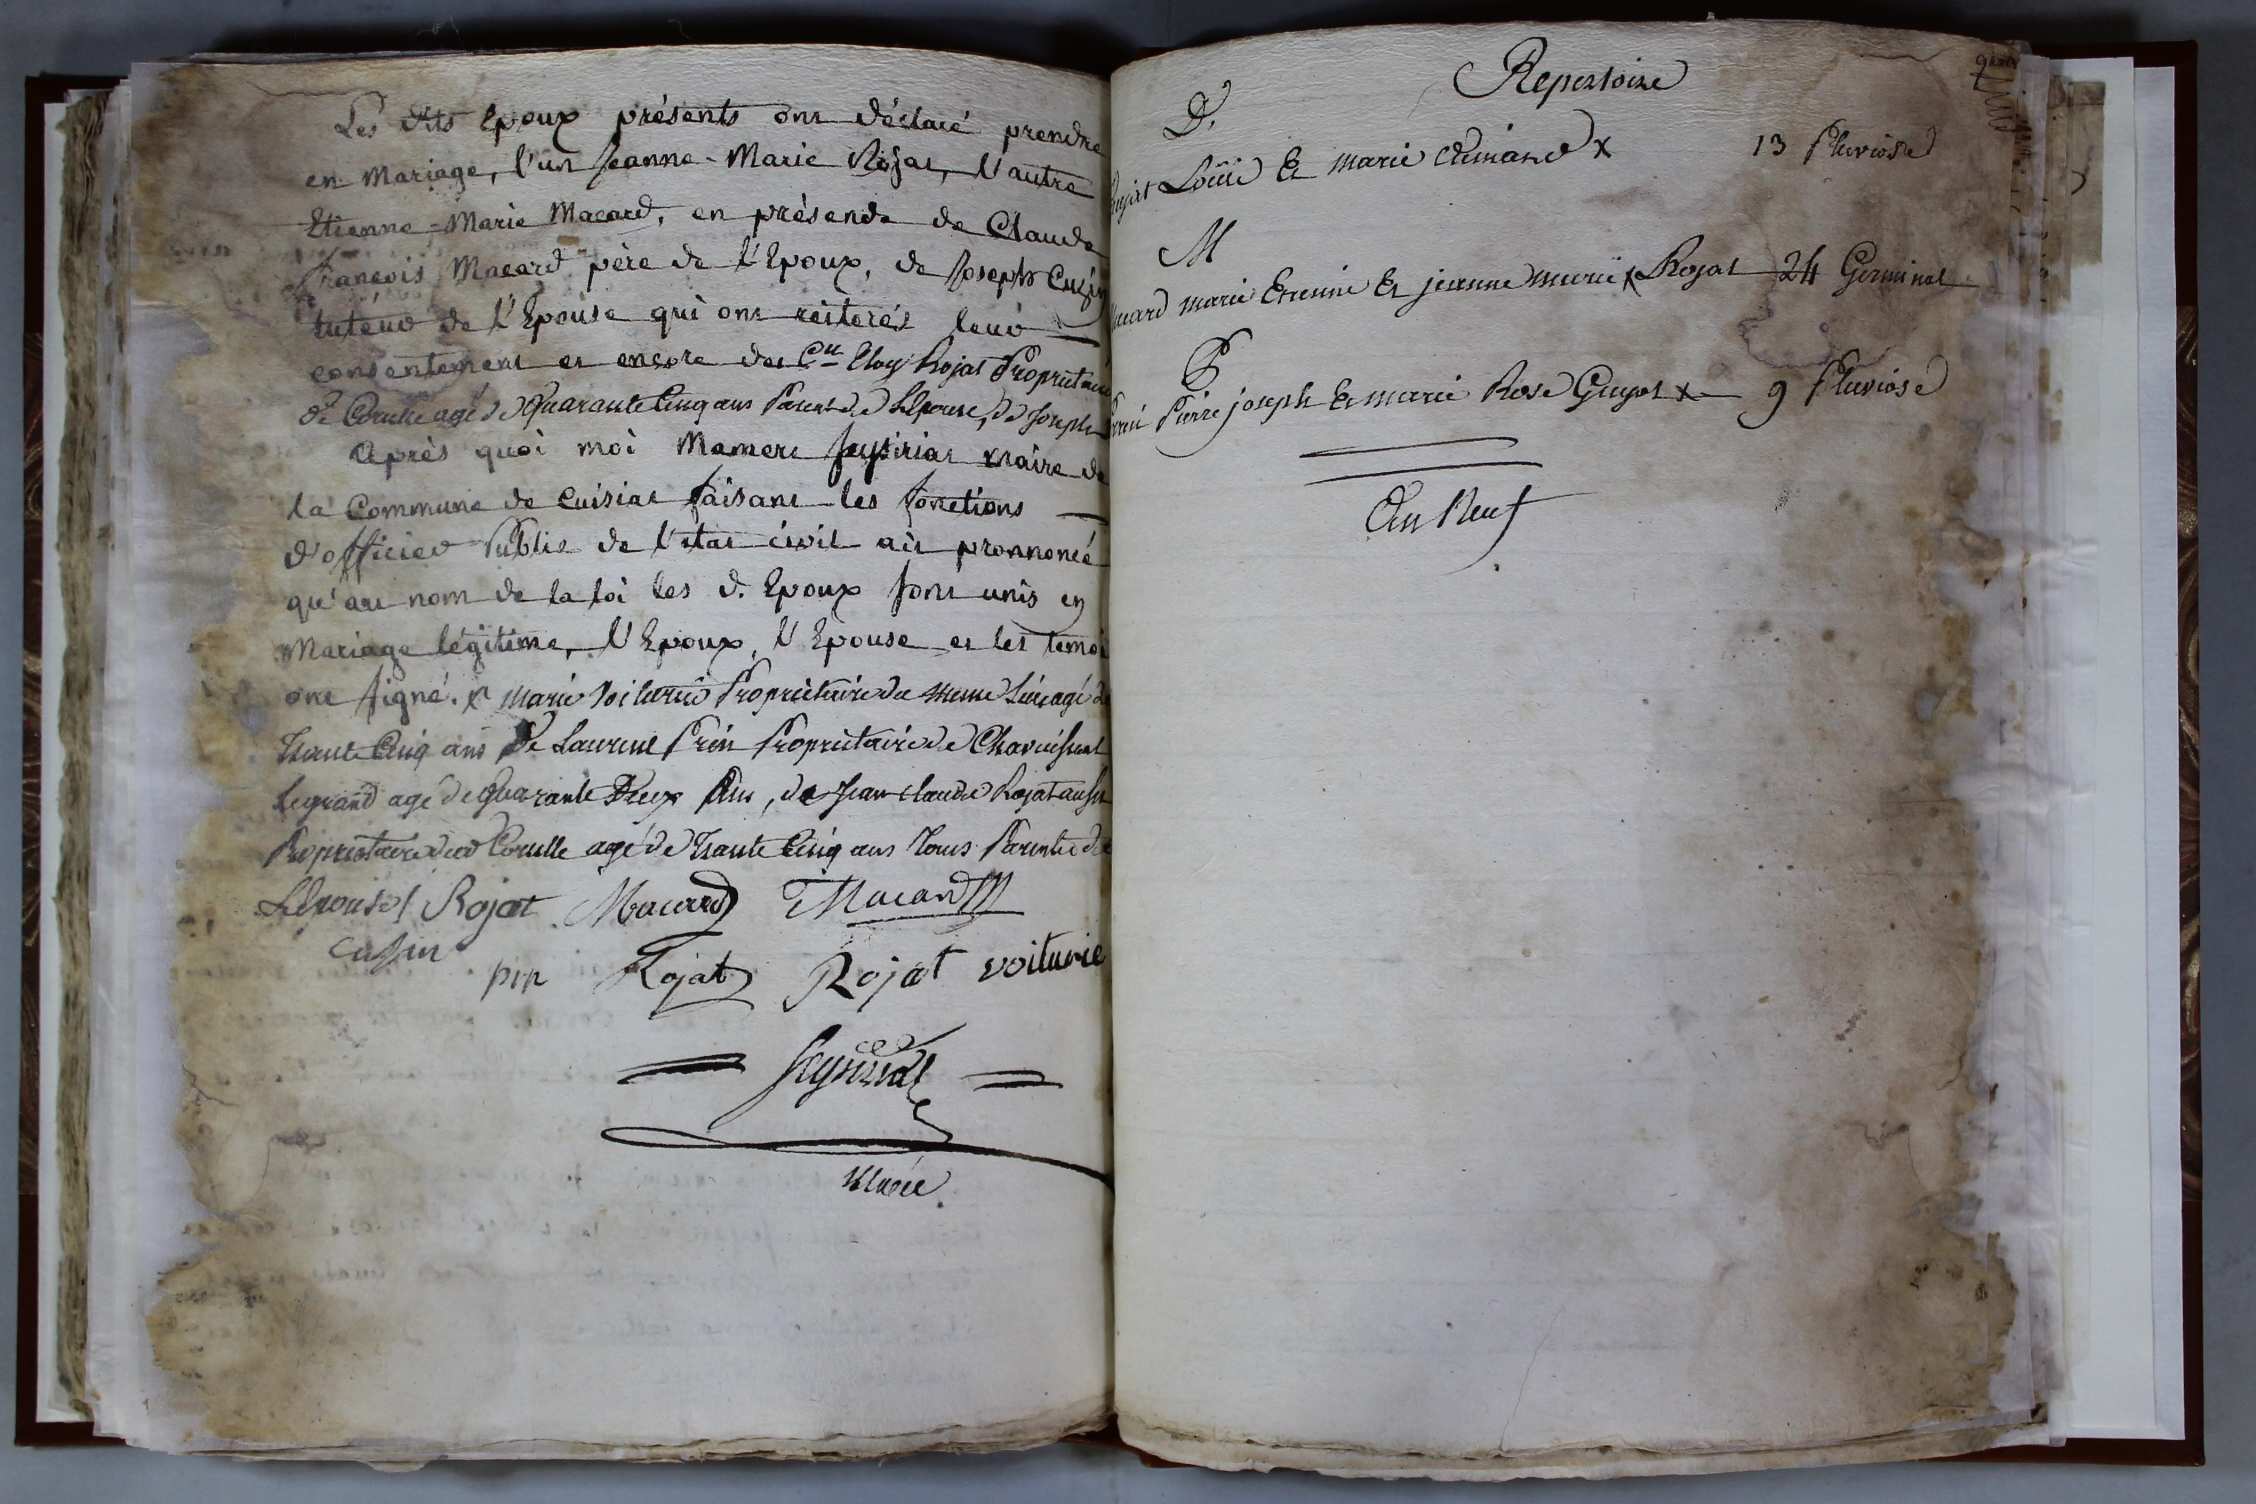 Les dits Epoux présents ont déclaré prendre
en Mariage, l'un Jeanne-Marie Rojat, l'autre
Etienne-Marie Macard, en présence de Claude
françois Macard père de l'Epoux, de Joseph Cuzin
tuteur de l'Epouse qui ont réiterés leur
consentement et encore des C.en Eloy Rojat Propriétaire
de Corcelle agé de Quarante Cinq ans Parent de L'Epouse, de Joseph
après quoi moi Mamert Jeyseriat maire de
la Commune de Cuisiat faisant les fonctions
d'officier Public de l'état civil ait pronnoncé
qu'au nom de la loi les d. Epoux sont unis en
Mariage légitime, l'Epoux, l'Epouse et les temoi
ont signé. x marie voiturié Propriétaire du meme Lieu agé de
trante Cinq ans De Laurent Prin Propriétaire de
Legrand agé de Quarante Deux Ans, de Jean claude Rojat aussi
Propriétaire agé de trante Cinq ans tous Parents de
L'Epouse / Rojat Macard Macard
pin Rojat Rojat voiturie
Maire
Repertoire
D.
Louis Et marie x 13 Pluviose
M
marie Etienne Et jeanne marie x Rojat 24 Germinal
P
Pierre joseph Et marie Rose Guyot x 9 Pluviose
An Neuf